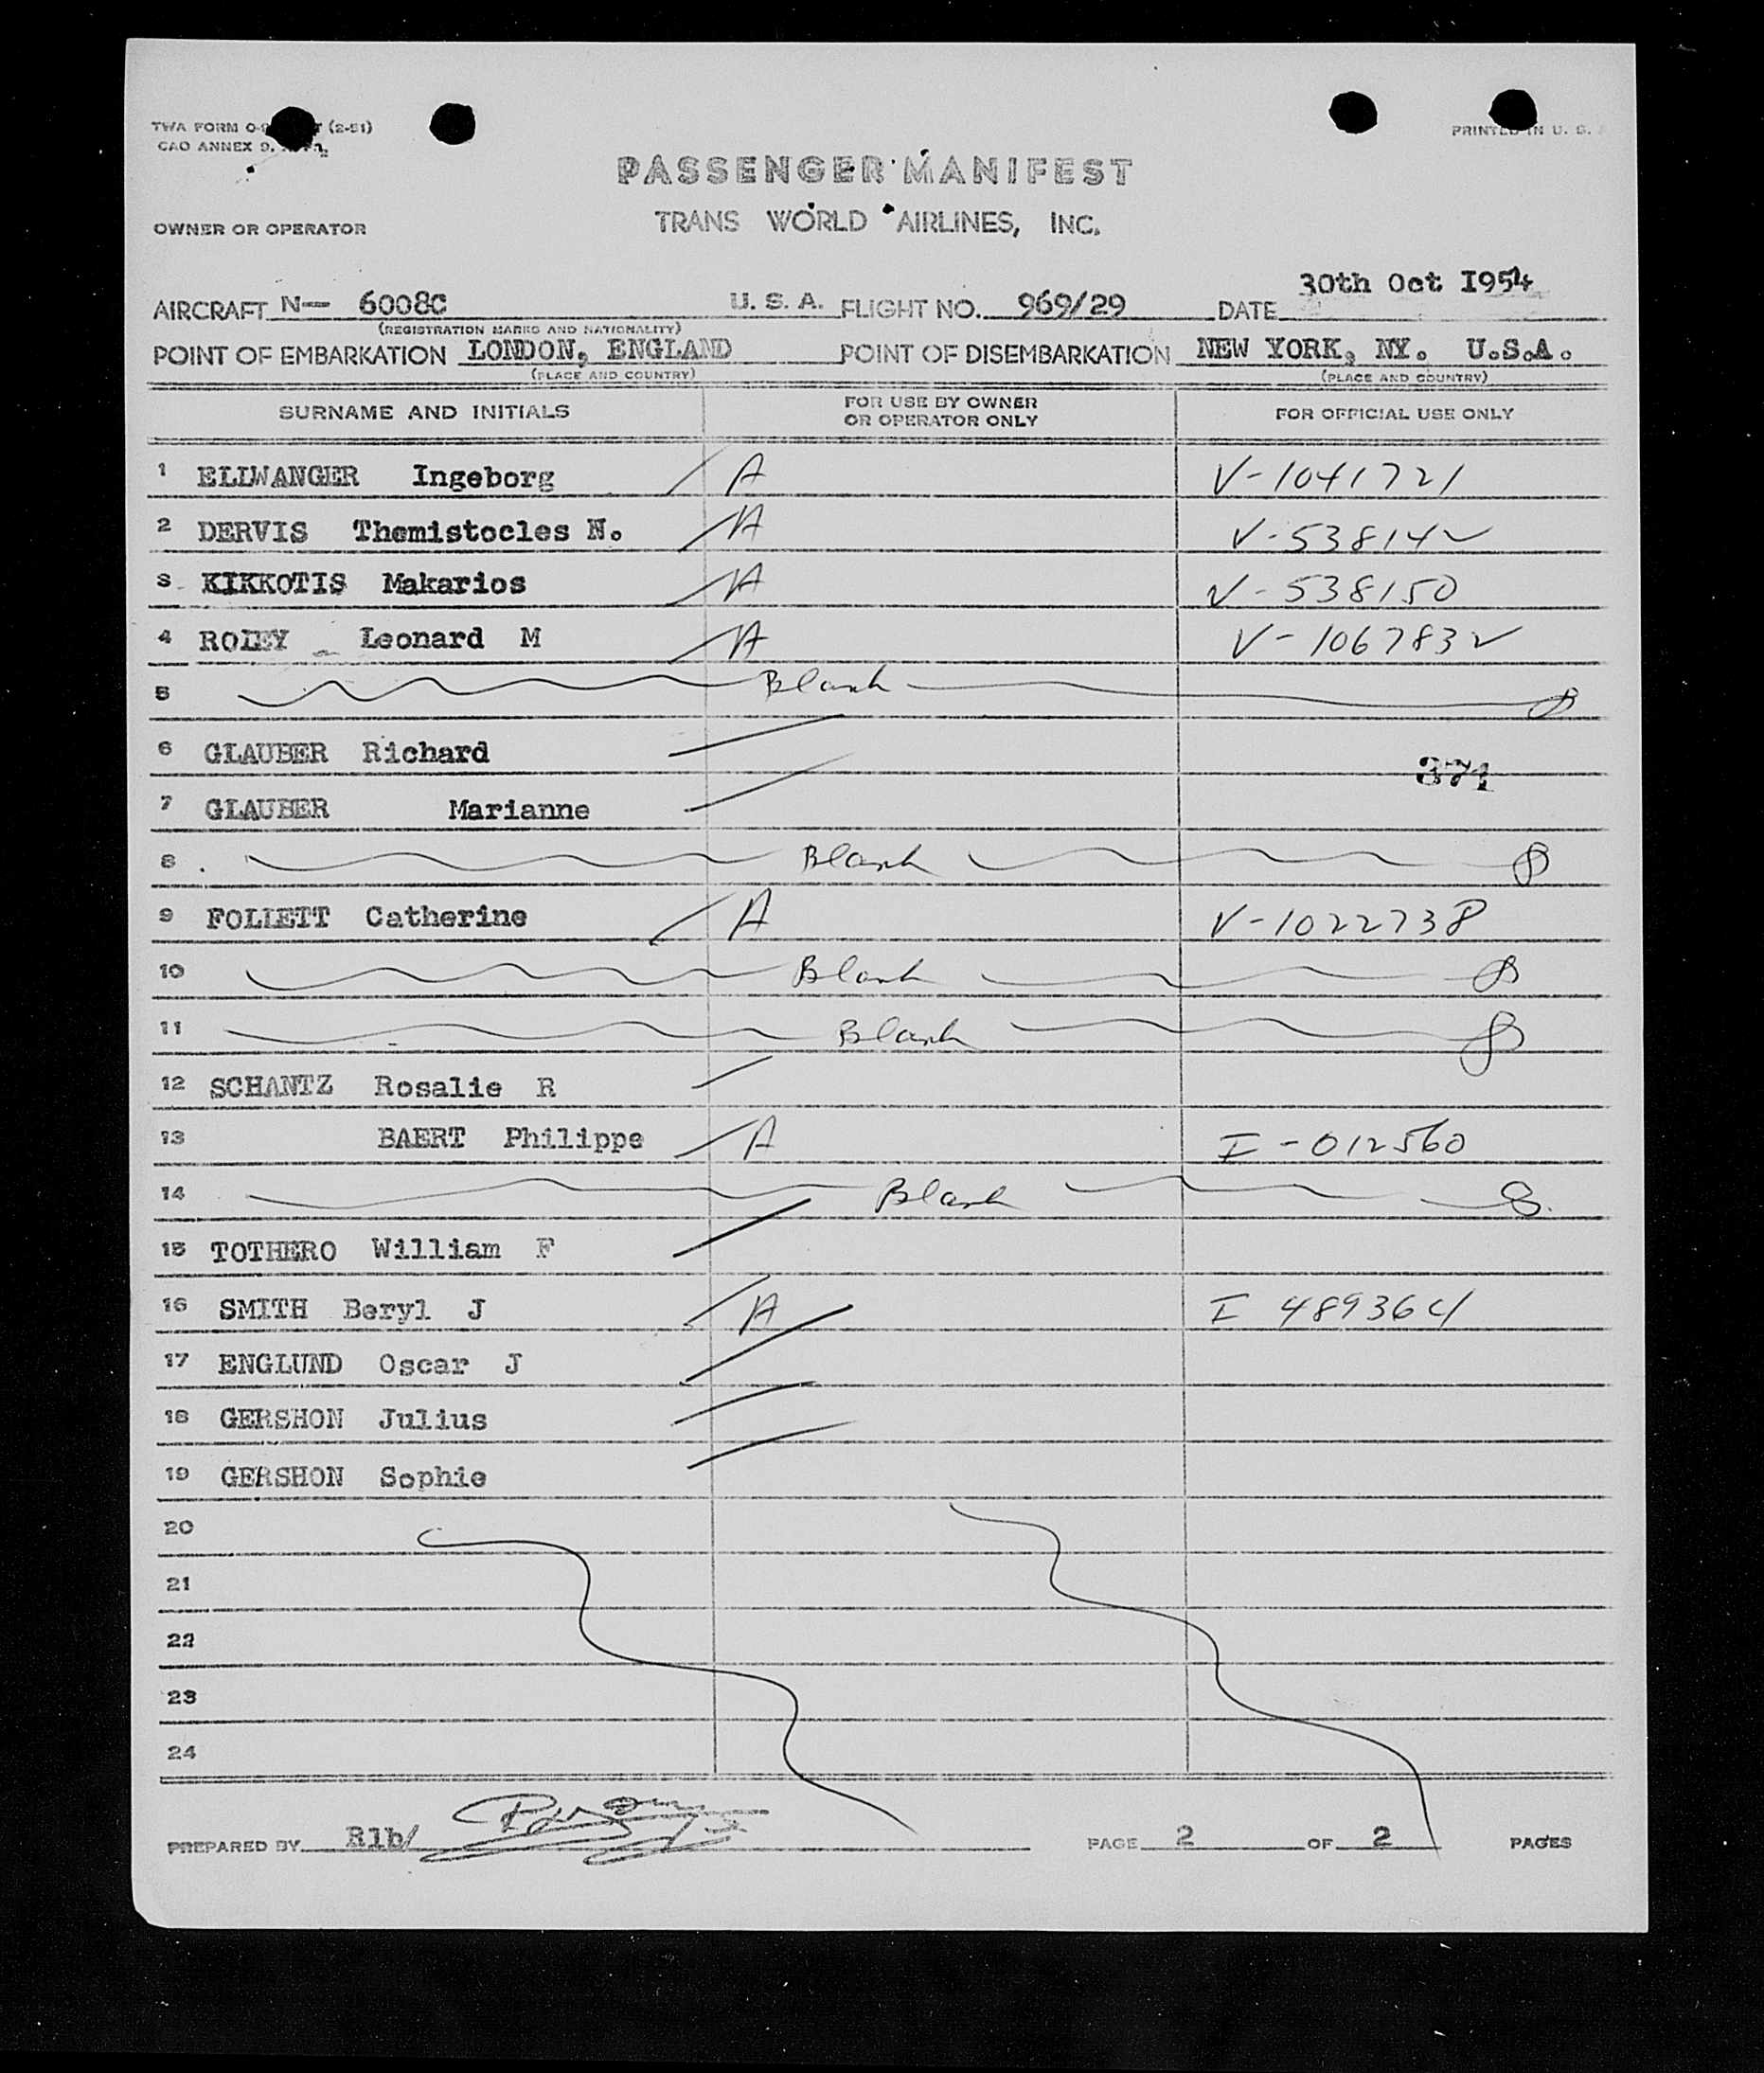 TWA FORM O- (2-51)
PRINTED IN U. S.
CAO ANNEX 9.
PASSENGER MANIFEST
OWNER OR OPERATOR
TRANS WORLD AIRLINES, INC.
AIRCRAFT N— 6008C U. S. A. FLIGHT NO. 969/29 DATE 30th Oct I954
(REGISTRATION MARKS AND NATIONALITY)
POINT OF EMBARKATION LONDON, ENGLAND POINT OF DISEMBARKATION NEW YORK, NY. U.S.A.
(PLACE AND COUNTRY) (PLACE AND COUNTRY)
SURNAME AND INITIALS FOR USE BY OWNER OR OPERATOR ONLY FOR OFFICIAL USE ONLY
1 ELLWANGER Ingeborg A V-1041721
2 DERVIS Themistocles N. A V-538142
3 KIKKOTIS Makarios A V-538150
4 ROLEY Leonard M A V-1067832
5 Blank
6 GLAUBER Richard
371
7 GLAUBER Marianne
8 Blank
9 FOLLETT Catherine A V-1022738
10 Blank
11 Blank
12 SCHANTZ Rosalie R
13 BAERT Philippe A I-012560
14 Blank
15 TOTHERO William F
16 SMITH Beryl J A I 489364
17 ENGLUND Oscar J
18 GERSHON Julius
19 GERSHON Sophie
20
21
22
23
24
PREPARED BY Rlb/ PAGE 2 OF 2 PAGES